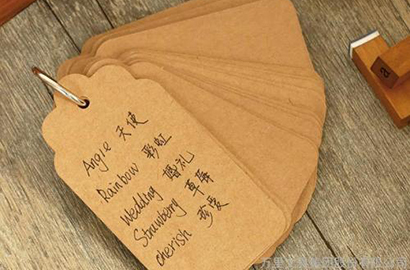 Angle 天使
Rainbow 彩虹
Wedding 婚礼
Strawberry 草莓
Cherish 珍爱